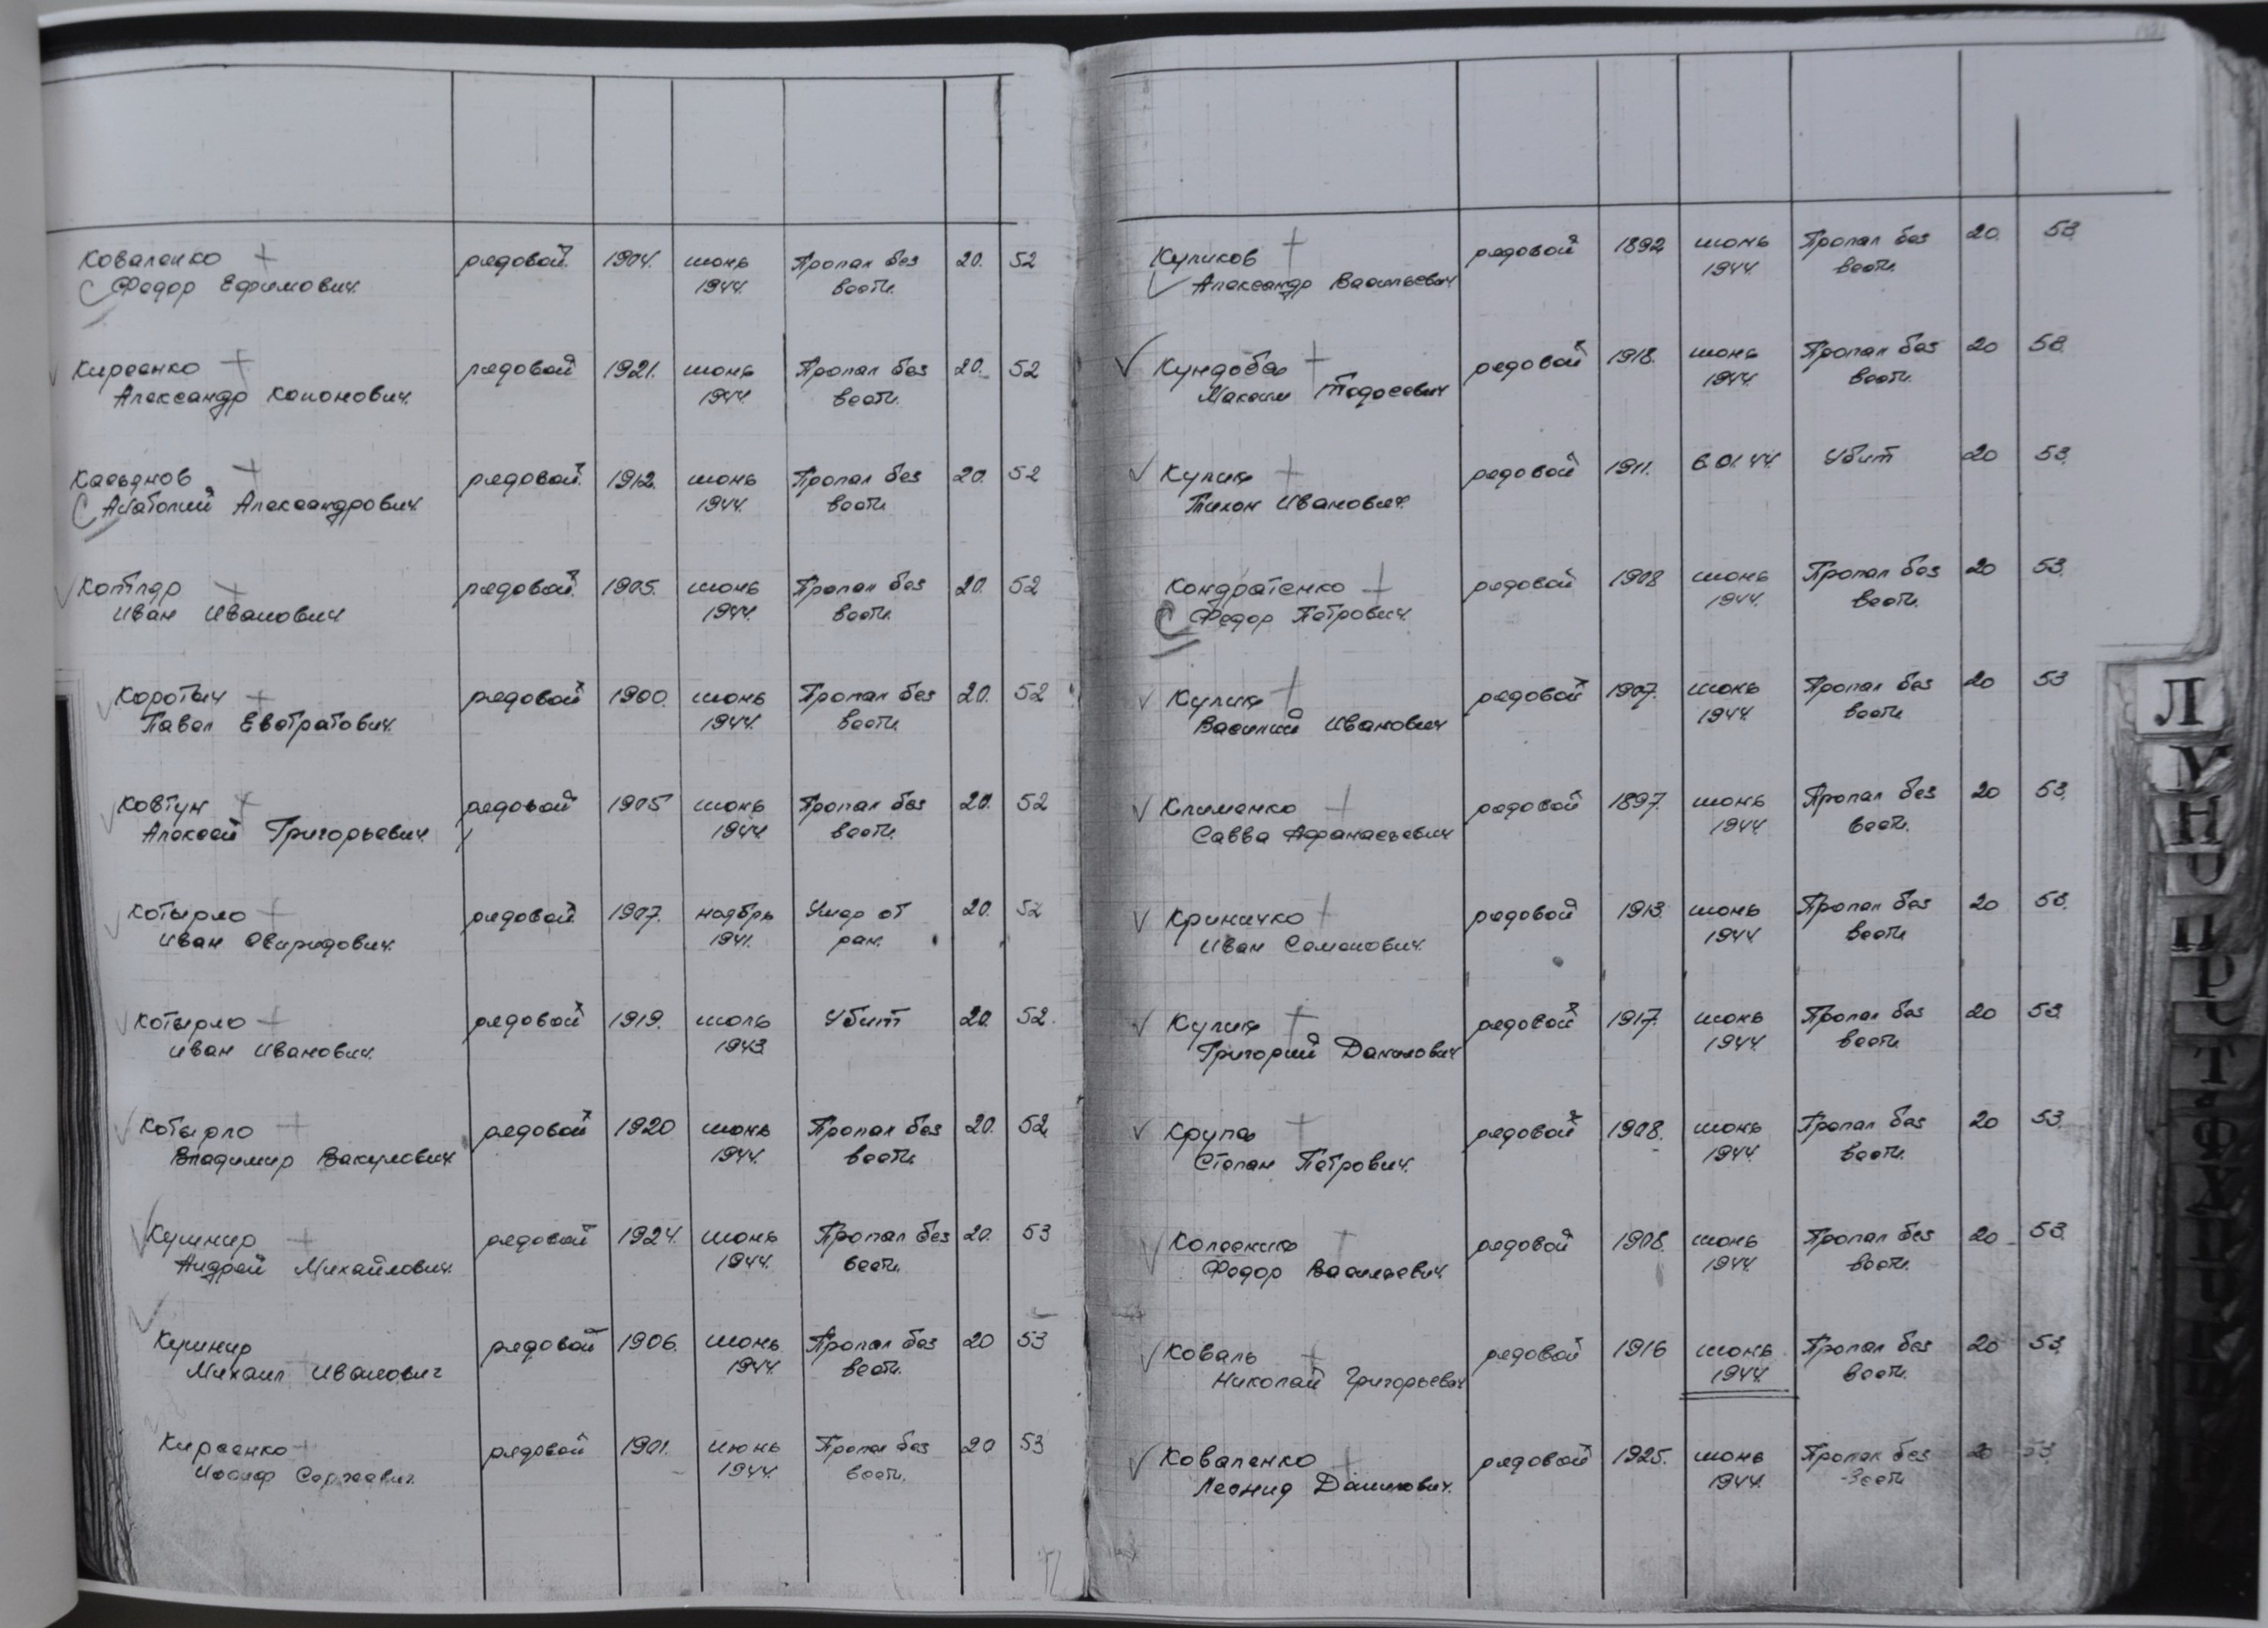 Коваленко рядовой 1904. июнь Пропал без 20. 52
Федор Ефимович. 1944. вести.
Киреенко рядовой 1921. июнь Пропал без 20. 52
Александр Кононович. 1944. вести.
Касьянов рядовой 1912. июнь Пропал без 20. 52
Анатолий Александрович. 1944. вести
Котляр рядовой 1905. июнь Пропал без 20. 52
Иван Иванович 1944. вести.
Коротыч рядовой 1900. июнь Пропал без 20. 52
Павел Евстратович. 1944. вести.
Ковтун рядовой 1905 июнь Пропал без 20. 52
Алексей Григорьевич 1944 вести.
Котырло рядовой 1907. ноябрь Умер от 20. 52
Иван Свиридович. 1941. ран.
Котырло рядовой 1919. июль Убит 20. 52.
Иван Иванович. 1943
Котырло рядовой 1920 июнь Пропал без 20. 52
Владимир Вакулович 1944. вести.
Кушнир рядовой 1924. июнь Пропал без 20. 53
Андрей Михайлович. 1944. вести.
Кушнир рядовой 1906. июнь Пропал без 20 53
Михаил Иванович 1944. вести.
Киреенко рядовой 1901. июнь Пропал без 20 53
Иосиф Сергеевич. 1944. вести.
Куликов рядовой 1892 июнь Пропал без 20. 53.
Александр Васильевич 1944 вести.
Кундоба рядовой 1918. июнь Пропал без 20 53.
Максим Тодосевич 1944 вести.
Кулик рядовой 1911. 6.01.44. Убит 20 53.
Тихон Иванович.
Кондратенко рядовой 1908 июнь Пропал без 20 53.
Федор Петрович. 1944. вести.
Кулик рядовой 1907. июнь Пропал без 20 53
Василий Иванович 1944. вести
Клименко рядовой 1897. июнь Пропал без 20 53.
Савва Афанасьевич 1944 вести.
Криничко рядовой 1913. июнь Пропал без 20 53.
Иван Семенович. 1944 вести
Кулик рядовой 1917. июнь Пропал без 20 53.
Григорий Данилович 1944. вести.
Крупа рядовой 1908. июнь Пропал без 20 53.
Степан Петрович. 1944. вести.
Колесник рядовой 1908. июнь Пропал без 20 53.
Федор Васильевич. 1944. вести.
Коваль рядовой 1916 июнь Пропал без 20 53.
Николай Григорьевич 1944. вести.
Коваленко рядовой 1925. июнь Пропал без 20 53
Леонид Данилович. 1944. вести
Л
М
Н
О
П
Р
С
Т